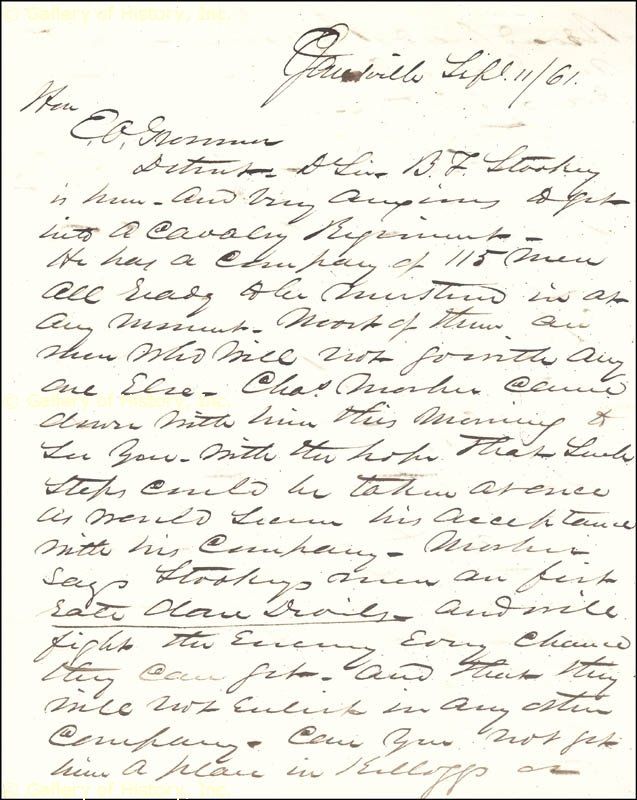 © Gallery of History, Inc.
Jonesville Sept. 11/61.
Hon
E.O. Grosvenor
Detroit - D Sir - B. F. Stookey
is here - and very anxious to get
into a Cavalry Regiment -
He has a Company of 115 men
all ready to be mustered in at
any moment - Most of them are
men who will not go with any
one else - Chas. Mosher came
down with him this morning to
see you - with the hope that such
steps could be taken at once
as would secure his acceptance
with his Company - Mosher
says Stookeys men are first
rate dare Devils - and will
fight the Enemy every chance
they can get - and that they
will not enlist in any other
Company - Can you not get
him a place in Kelloggs or
© Gallery of History, Inc.
© Gallery of History, Inc.